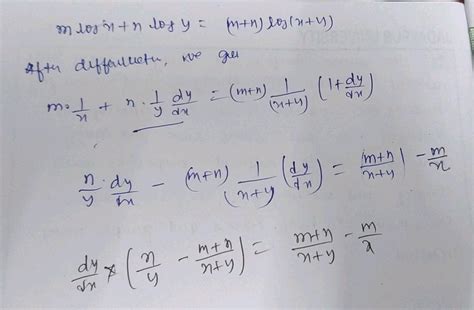 m log x + n log y = (m+n) log(x+y)
After differentiation, we get
m·1/x + n·1/y dy/dx = (m+n) 1/(x+y) (1+dy/dx)
n/y·dy/dx − (m+n) 1/(x+y) (dy/dx) = m+n/x+y) − m/x
dy/dx × (n/y − m+n/x+y) = m+n/x+y − m/x